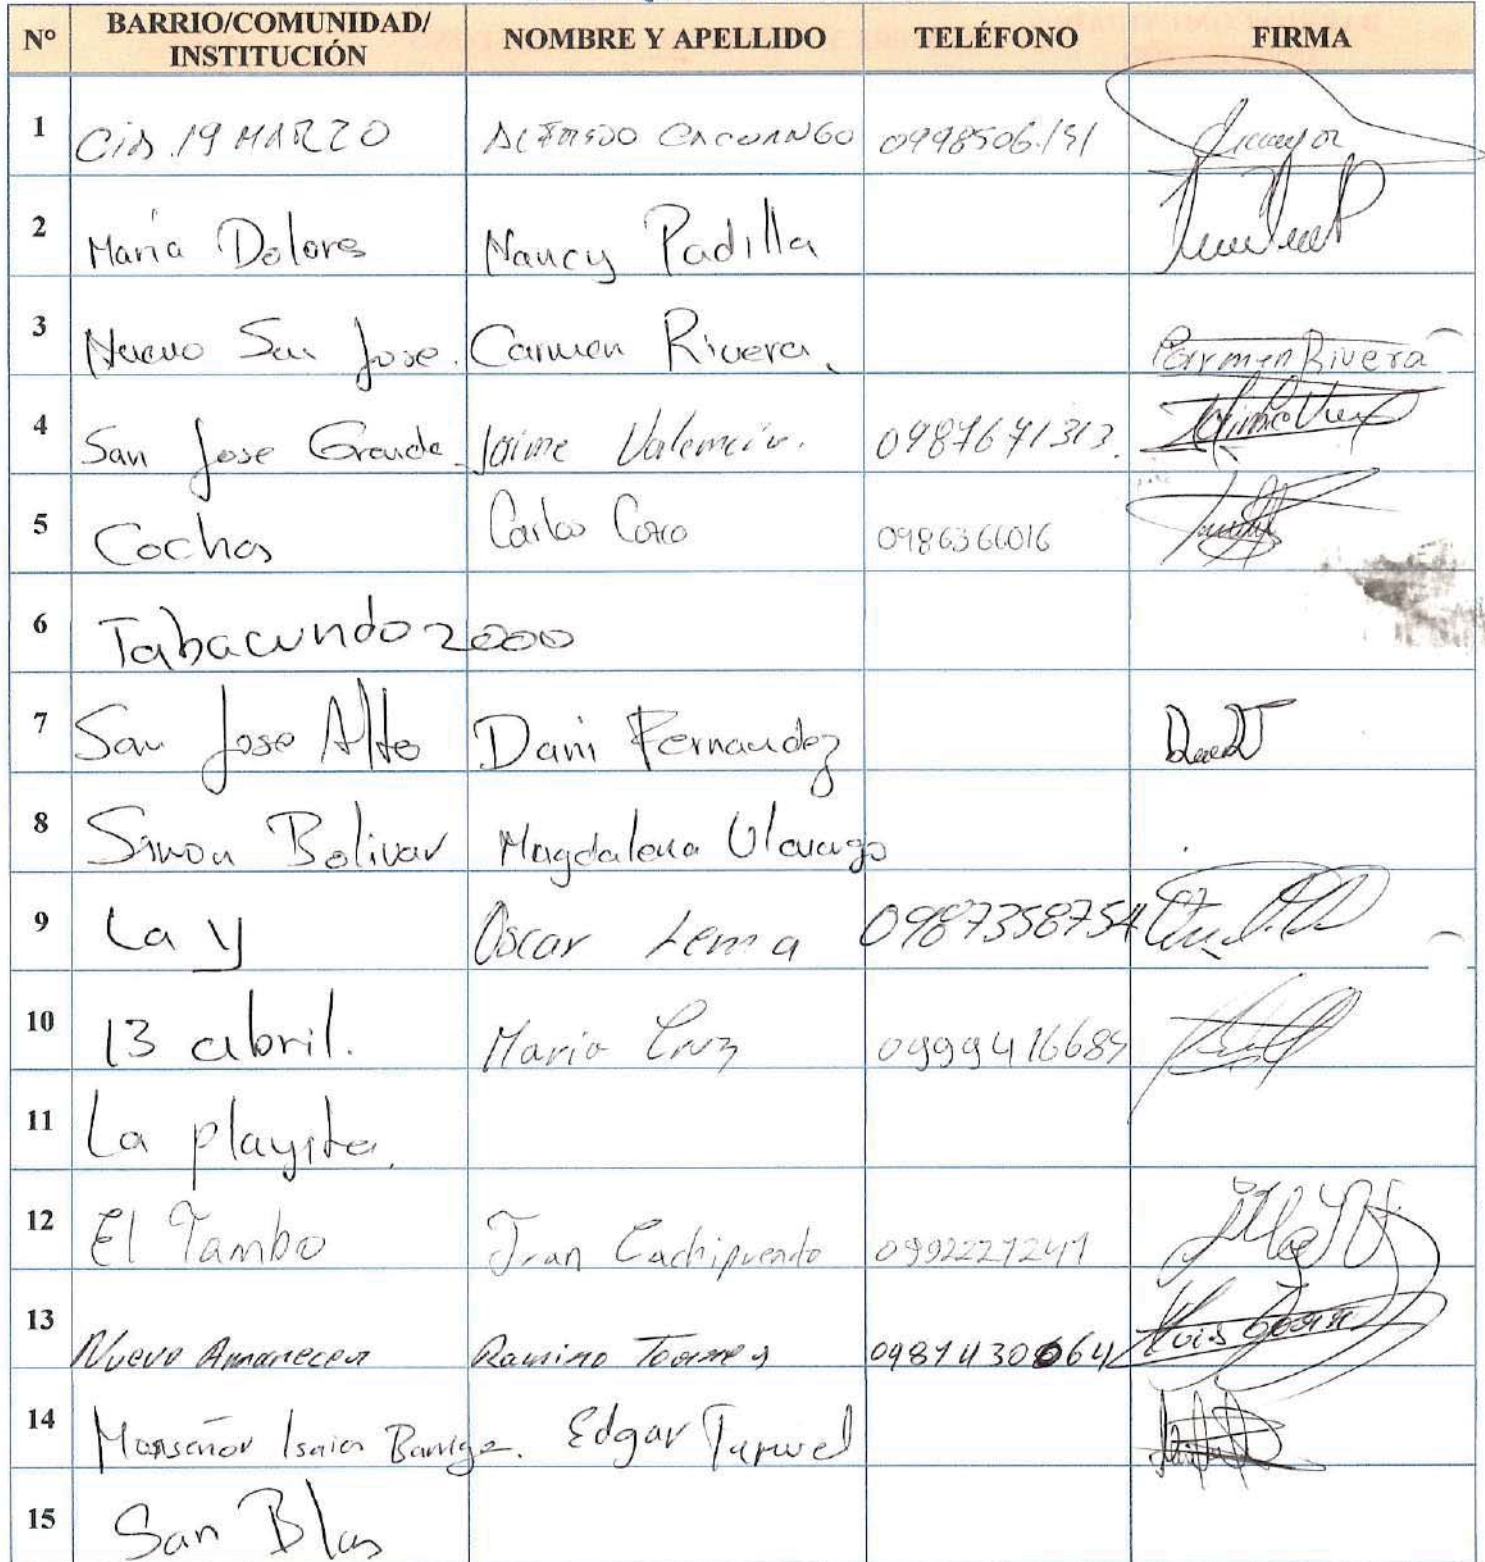 N° BARRIO/COMUNIDAD/ INSTITUCIÓN NOMBRE Y APELLIDO TELÉFONO FIRMA
1 19 MARZO ALFREDO CACUANGO
2 María Dolores Nancy Padilla
3 Nuevo San Jose. Carmen Rivera, Carmen Rivera
4 San Jose Grande Jaime Valencia.
5 Cochas Carlos 0986366016
6 Tabacundo 2000
7 San Jose Alto Dani Fernandez
8 Simon Bolivar Magdalena
9 La Y Oscar Lema 0987358754
10 13 abril. Mario Cruz
11 La playita.
12 El Tambo Cachipuendo
13 Nuevo Amanecer Ramiro Torres
14 Monseñor Isaias Barriga. Edgar
15 San Blas